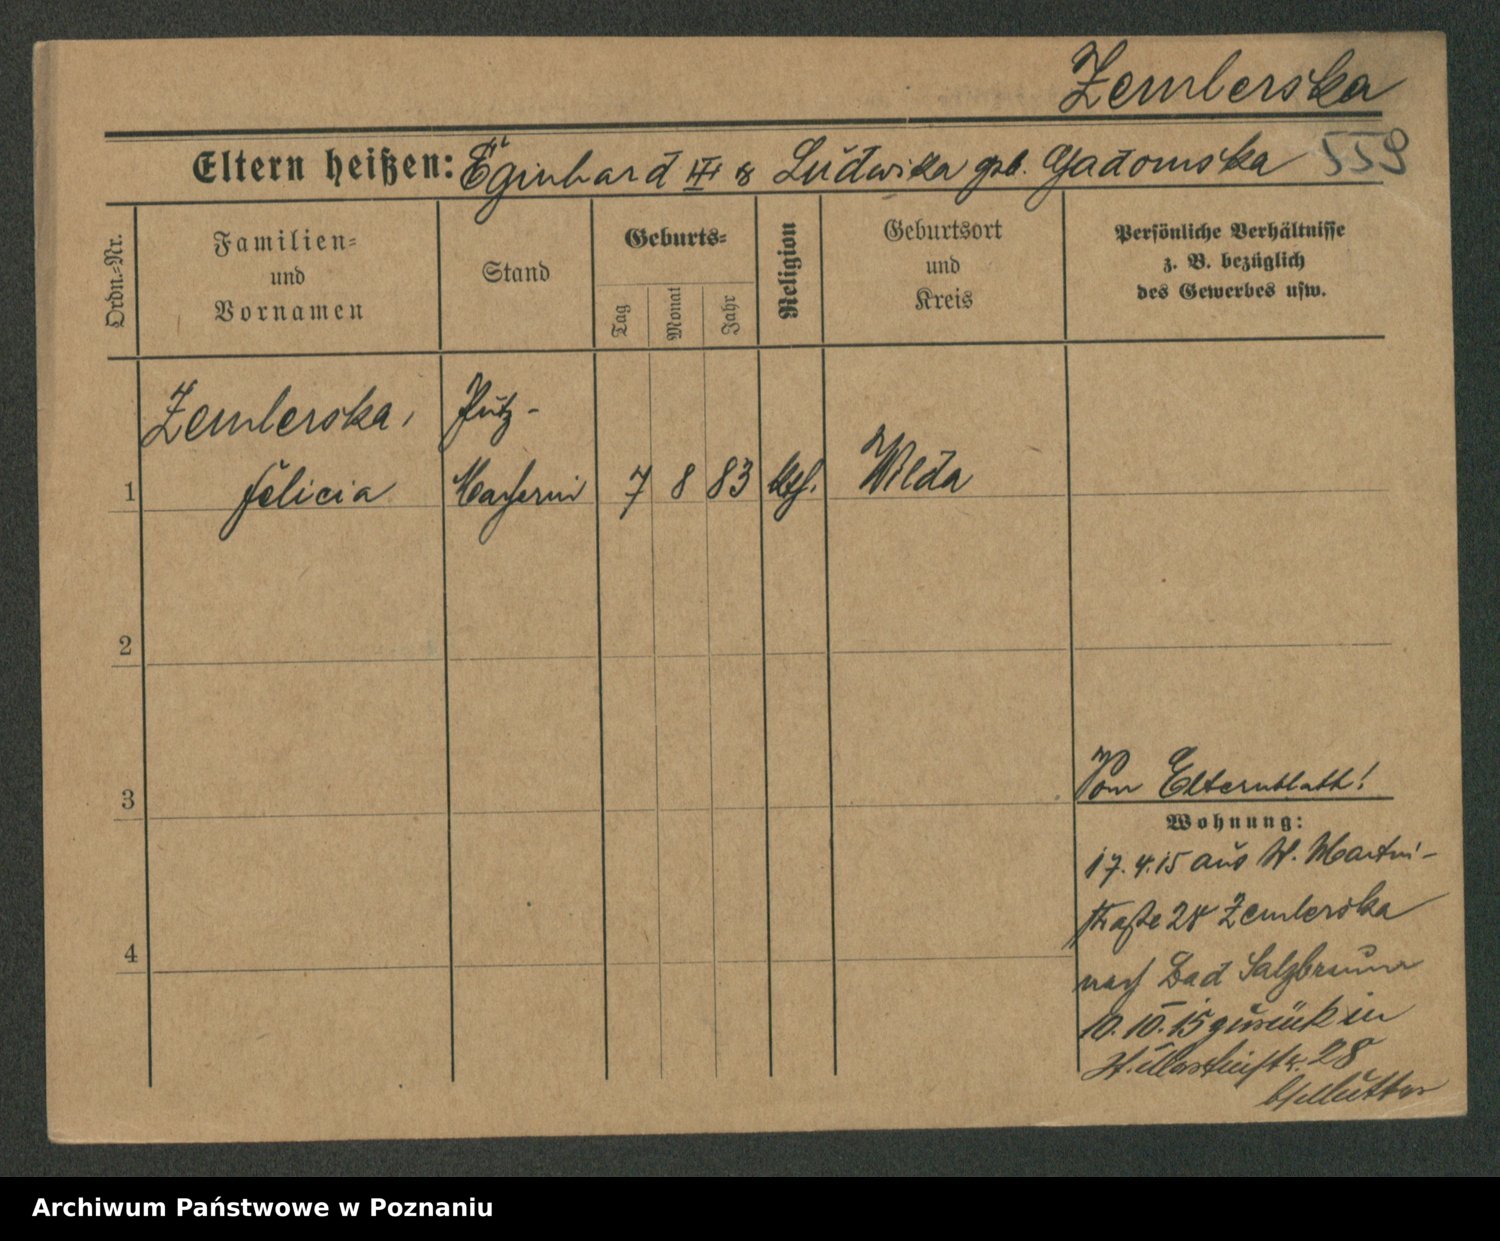 Zemlerska
Eltern heißen: Eginhard III & Ludwika geb. Gadomska 559
Ordn.-Nr.
Familien-
und
Vornamen
Stand
Geburts-
Tag
Monat
Jahr
Religion
Geburtsort
und
Kreis
Persönliche Verhältnisse
z. B. bezüglich
des Gewerbes usw.
Zemlerska, Putz-
1 Felicia Macherin 7 8 83 kth. Wilda
2
3
4
Vom Elternblatt!
Wohnung:
17.4.15 aus St. Martin-
straße 28 Zemlerska
nach Bad Salzbrunn
10.10.15 zurück in
St. Martinstr. 28
b/Mutter